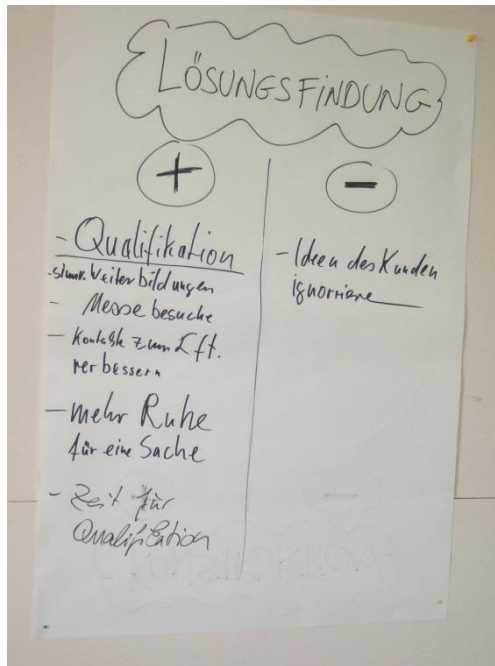 LÖSUNGSFINDUNG
+
-
- Qualifikation
Weiterbildungen
- Messebesuche
- Kontakte zum Lft.
verbessern
- mehr Ruhe
für eine Sache
- Zeit für
Qualifikation
- Ideen des Kunden
ignorriere